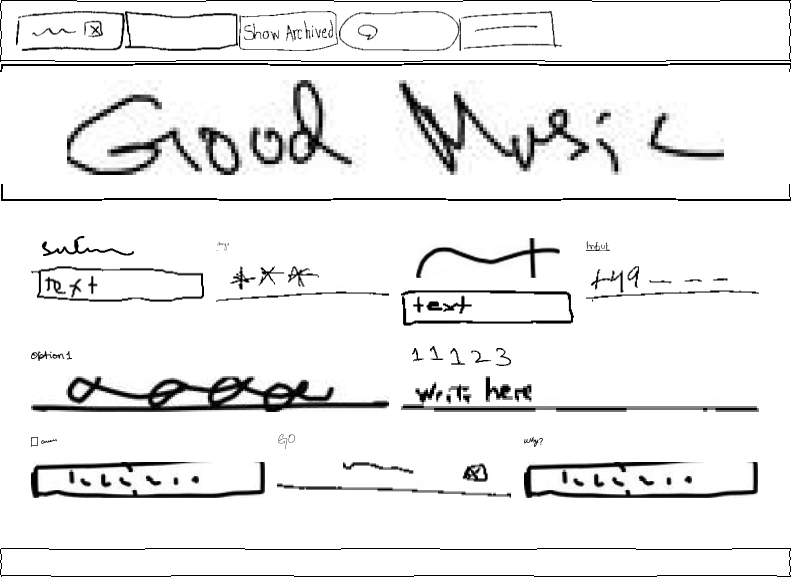 Show Archived
Good Music
Input
text
+49
text
Option 1
1 1 1 2 3
Write here
GO
Why?